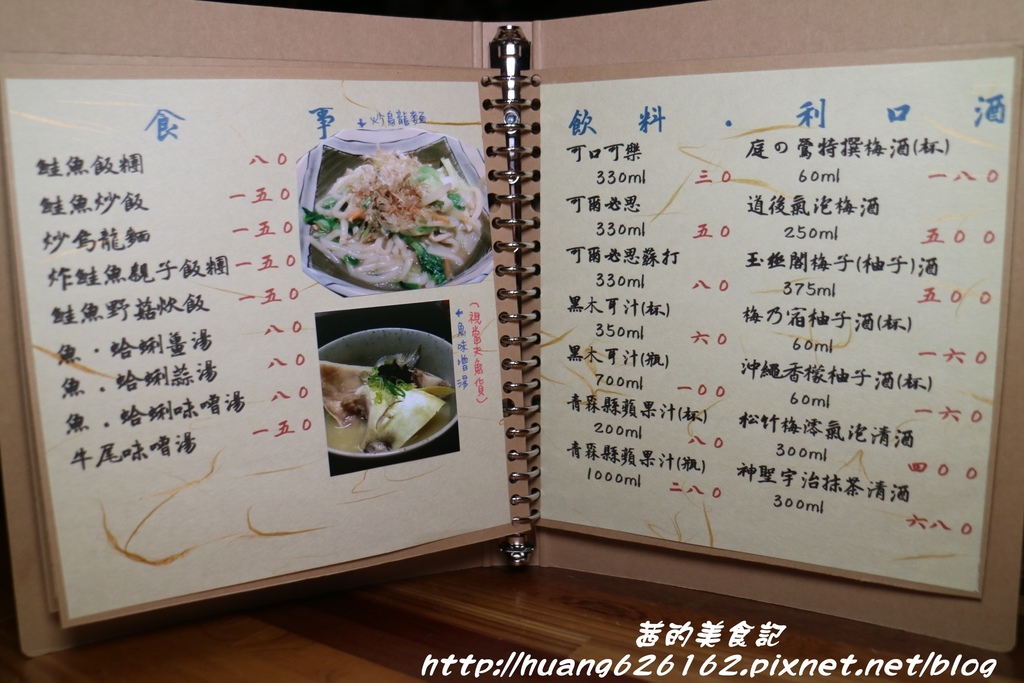 食事
鮭魚飯糰 八０
鮭魚炒飯 一五０
炒烏龍麵 一五０
炸鮭魚親子飯糰 一五０
鮭魚野菇炊飯 一五０
魚．蛤蜊薑湯 八０
魚．蛤蜊蒜湯 八０
魚．蛤蜊味噌湯 八０
牛尾味噌湯 一五０
炒烏龍麵
(視當天魚貨)
魚味噌湯
飲料．利口酒
可口可樂
330ml 三０
可爾必思
330ml 五０
可爾必思蘇打
330ml 八０
黑木耳汁(杯)
350ml 六０
黑木耳汁(瓶)
700ml 一００
青森縣蘋果汁(杯)
200ml 八０
青森縣蘋果汁(瓶)
1000ml 二八０
庭の鶯特撰梅酒(杯)
60ml 一八０
道後氣泡梅酒
250ml 五００
玉極閣梅子(柚子)酒
375ml 五００
梅乃宿柚子酒(杯)
60ml 一六０
沖繩香檬柚子酒(杯)
60ml 一六０
松竹梅澪氣泡清酒
300ml 四００
神聖宇治抹茶清酒
300ml 六八０
茜的美食記
http://huang626162.pixnet.net/blog